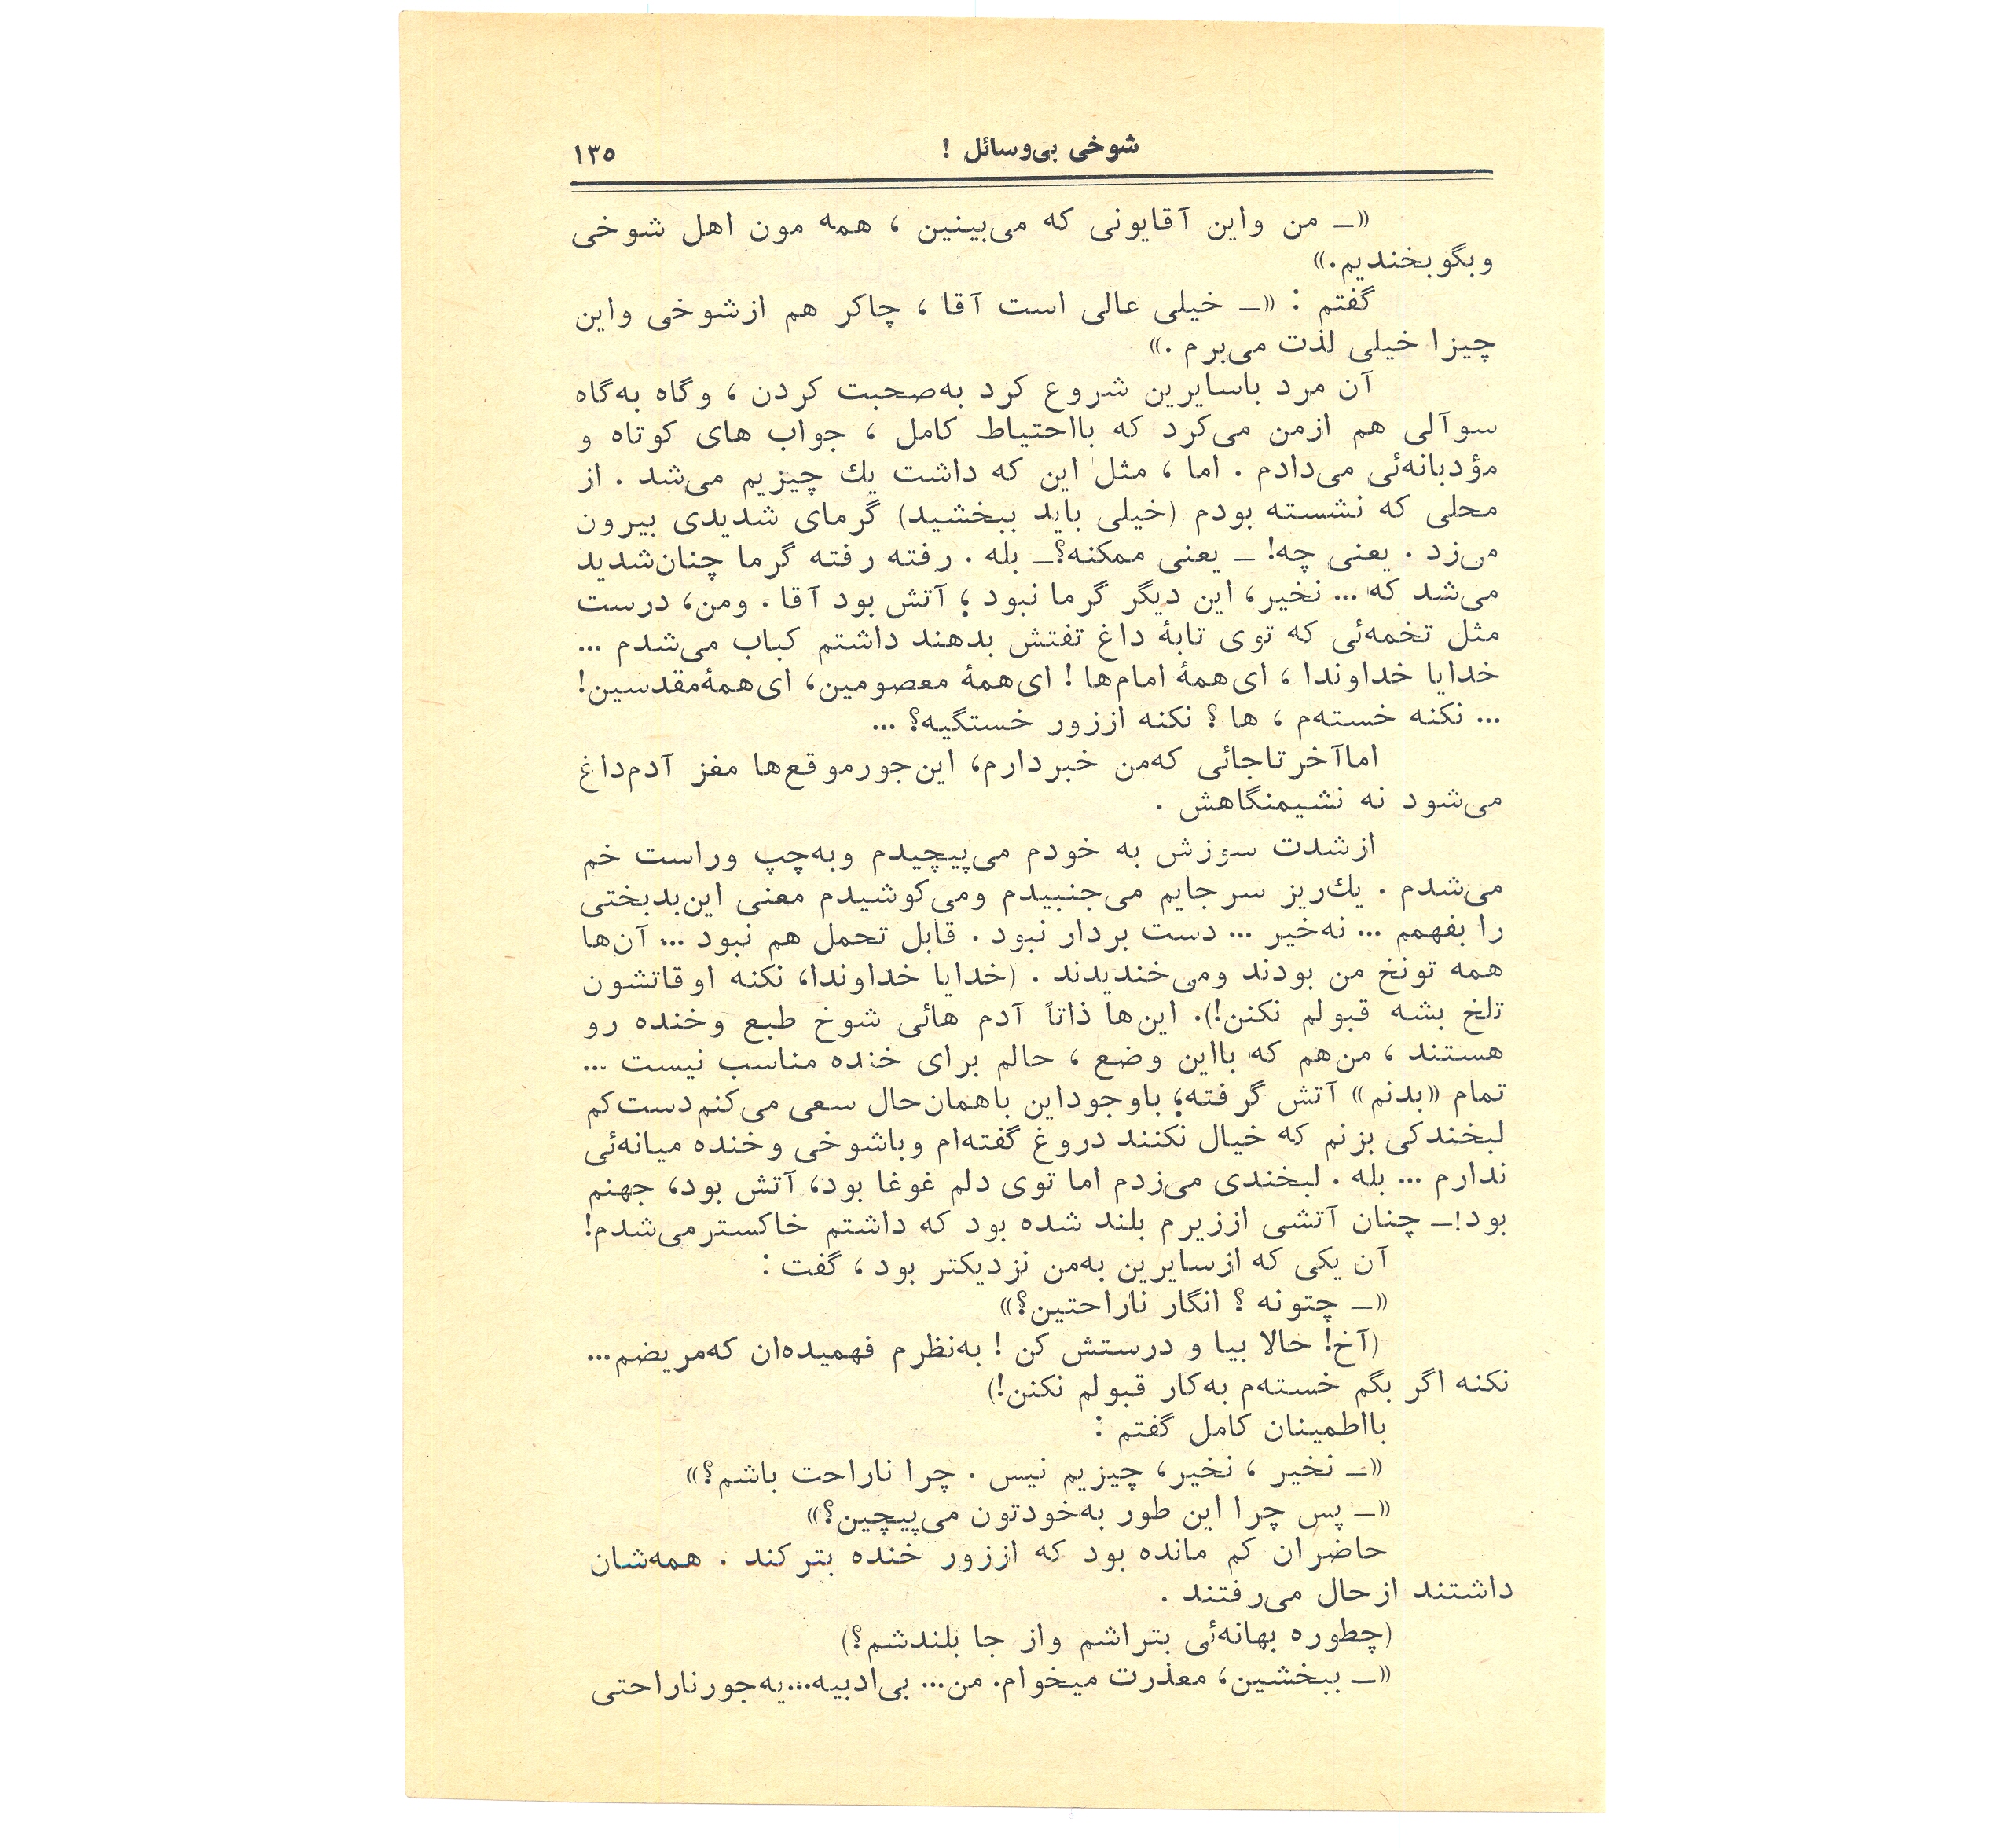 شوخی بی‌وسائل !
۱۳۵
«ــ من واین آقایونی که می‌بینین ، همه مون اهل شوخی
وبگوبخندیم.»
گفتم : «ــ خیلی عالی است آقا ، چاکر هم ازشوخی واین
چیزا خیلی لذت می‌برم .»
آن مرد باسایرین شروع کرد به‌صحبت کردن ، وگاه به‌گاه
سوآلی هم ازمن می‌کرد که بااحتیاط کامل ، جواب های کوتاه و
مؤدبانه‌ئی می‌دادم . اما ، مثل این که داشت یك چیزیم می‌شد . از
محلی که نشسته بودم (خیلی باید ببخشید) گرمای شدیدی بیرون
می‌زد . یعنی چه! ــ یعنی ممکنه؟ــ بله . رفته رفته گرما چنان‌شدید
می‌شد که ... نخیر، این دیگر گرما نبود ؛ آتش بود آقا . ومن، درست
مثل تخمه‌ئی که توی تابهٔ داغ تفتش بدهند داشتم کباب می‌شدم ...
خدایا خداوندا ، ای‌همهٔ امام‌ها ! ای‌همهٔ معصومین، ای‌همهٔ‌مقدسین!
... نکنه خسته‌م ، ها ؟ نکنه اززور خستگیه؟ ...
اماآخرتاجائی که‌من خبردارم، این‌جورموقع‌ها مغز آدم‌داغ
می‌شود نه نشیمنگاهش .
ازشدت سوزش به خودم می‌پیچیدم وبه‌چپ وراست خم
می‌شدم . یك‌ریز سرجایم می‌جنبیدم ومی‌کوشیدم معنی این‌بدبختی
را بفهمم ... نه‌خیر ... دست بردار نبود . قابل تحمل هم نبود ... آن‌ها
همه تونخ من بودند ومی‌خندیدند . (خدایا خداوندا، نکنه اوقاتشون
تلخ بشه قبولم نکنن!). این‌ها ذاتاً آدم هائی شوخ طبع وخنده رو
هستند ، من‌هم که بااین وضع ، حالم برای خنده مناسب نیست ...
تمام «بدنم» آتش گرفته؛ باوجوداین باهمان‌حال سعی می‌کنم‌دست‌کم
لبخندکی بزنم که خیال نکنند دروغ گفته‌ام وباشوخی وخنده میانه‌ئی
ندارم ... بله . لبخندی می‌زدم اما توی دلم غوغا بود، آتش بود، جهنم
بود!ــ چنان آتشی اززیرم بلند شده بود که داشتم خاکسترمی‌شدم!
آن یکی که ازسایرین به‌من نزدیکتر بود ، گفت :
«ــ چتونه ؟ انگار ناراحتین؟»
(آخ! حالا بیا و درستش کن ! به‌نظرم فهمیده‌ان که‌مریضم...
نکنه اگر بگم خسته‌م به‌کار قبولم نکنن!)
بااطمینان کامل گفتم :
«ــ نخیر ، نخیر، چیزیم نیس . چرا ناراحت باشم؟»
«ــ پس چرا این طور به‌خودتون می‌پیچین؟»
حاضران کم مانده بود که اززور خنده بترکند . همه‌شان
داشتند ازحال می‌رفتند .
(چطوره بهانه‌ئی بتراشم واز جا بلندشم؟)
«ــ ببخشین، معذرت میخوام. من... بی‌ادبیه...یه‌جورناراحتی